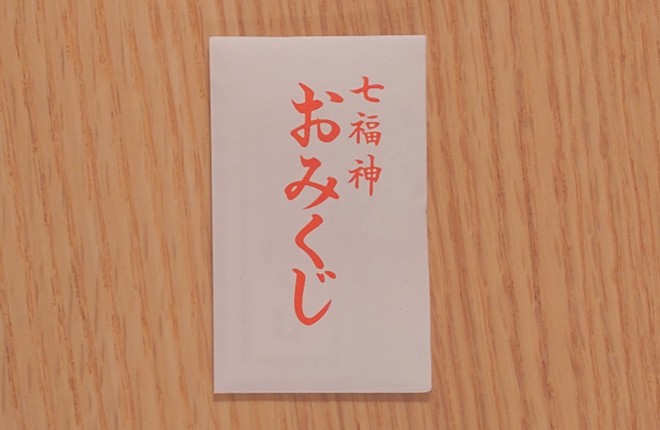 七福神
おみくじ